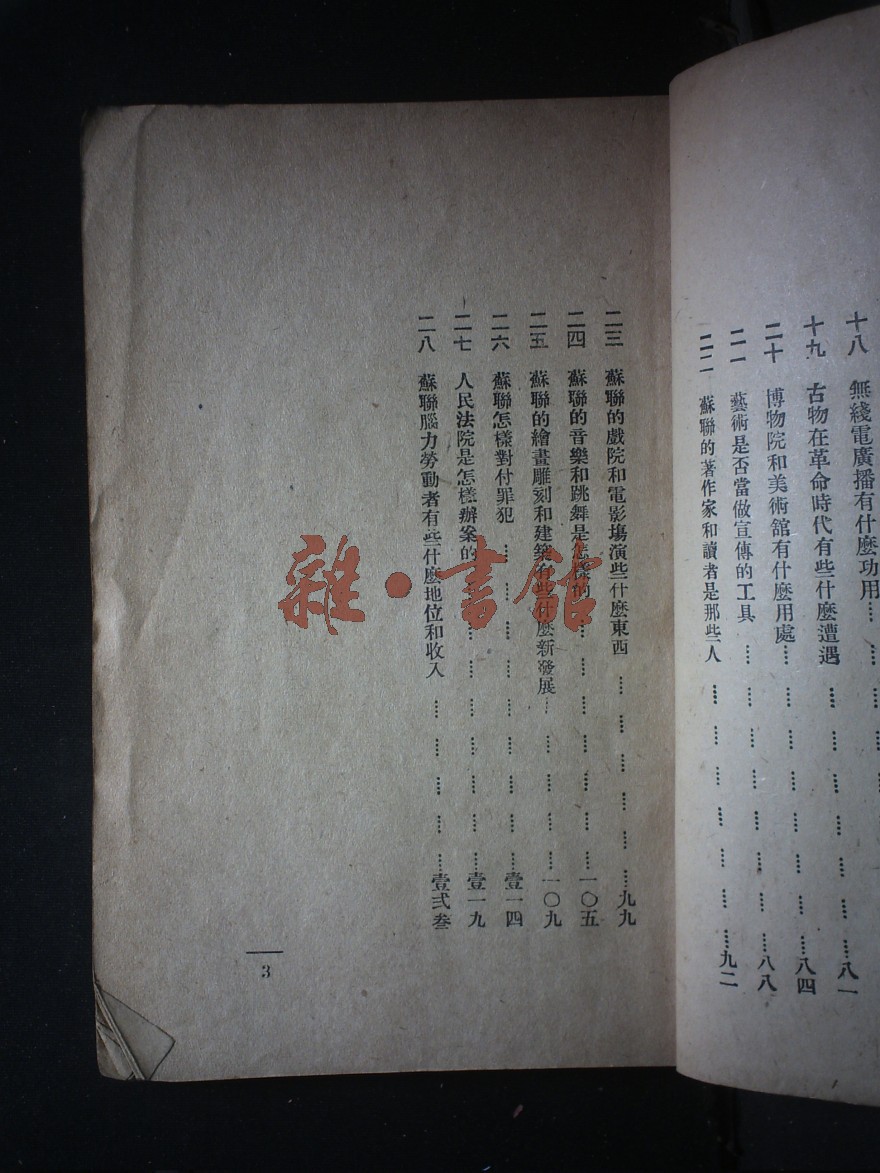 十八 無綫電廣播有什麼功用……八一
十九 古物在革命時代有些什麼遭遇……八四
二十 博物院和美術舘有什麼用處……八八
二一 藝術是否當做宣傳的工具
二二 蘇聯的著作家和讀者是那些人……九二
二三 蘇聯的戲院和電影場演些什麼東西……九九
二四 蘇聯的音樂和跳舞是怎樣的……一〇五
二五 蘇聯的繪畫雕刻和建築有些什麼新發展……一〇九
二六 蘇聯怎樣對付罪犯……壹一四
二七 人民法院是怎樣辦案的……壹一九
二八 蘇聯腦力勞動者有些什麼地位和收入……壹弍叁
3
雜·書館